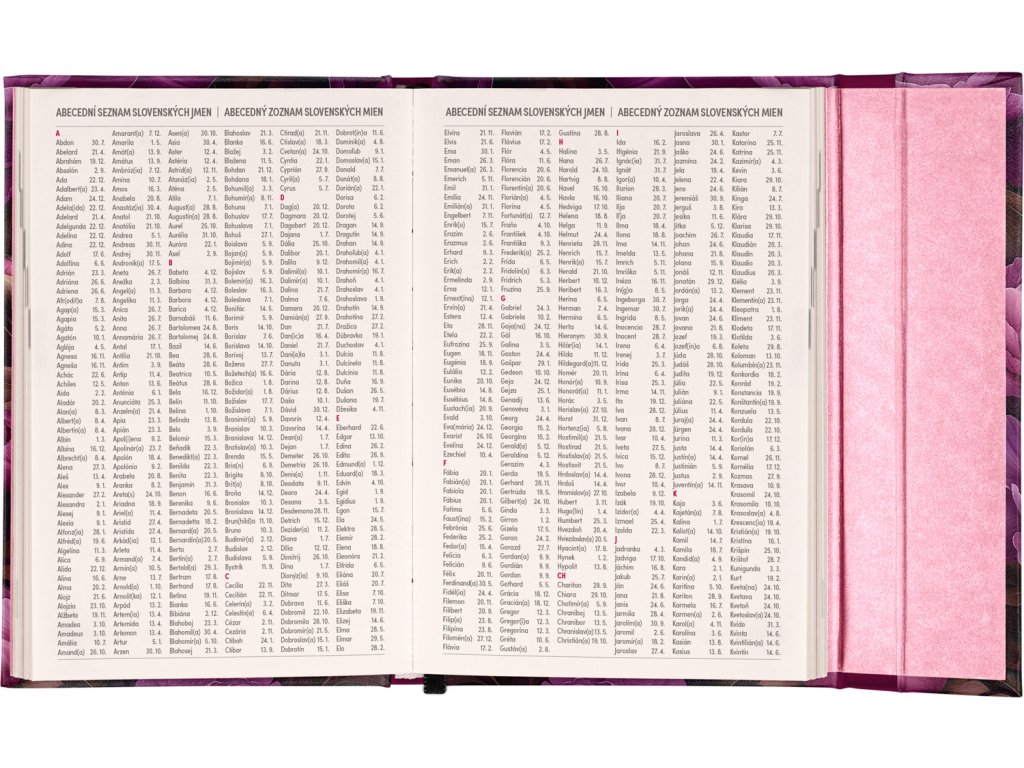 ABECEDNÍ SEZNAM SLOVENSKÝCH JMEN | ABECEDNÝ ZOZNAM SLOVENSKÝCH MIEN
A
Abdon 30. 7.
Abelard 21. 4.
Abrahám 19. 12.
Absolón 2. 9.
Ada 22. 12.
Adalbert(a) 23. 4.
Adam 24. 12.
Adela(ida) 22. 12.
Adelard 21. 4.
Adelgunda 22. 12.
Adelína 22. 12.
Adina 22. 12.
Adolf 17. 6.
Adolfína 6. 6.
Adrián 23. 3.
Adriána 26. 6.
Adriena 26. 6.
Afr(odit)a 7. 8.
Agap(a) 15. 3.
Agapia 15. 3.
Agáta 5. 2.
Agatón 10. 1.
Aglája 4. 5.
Agnesa 16. 11.
Agneša 16. 11.
Achác 22. 6.
Achiles 12. 5.
Aida 2. 2.
Aladár 20. 2.
Alan(a) 8. 3.
Albert(a) 8. 4.
Albertín(a) 8. 4.
Albín 1. 3.
Albína 16. 12.
Albrecht(a) 8. 4.
Alena 27. 3.
Aleš 13. 4.
Alex 9. 1.
Alexander 27. 2.
Alexandra 2. 1.
Alexej 9. 1.
Alexia 9. 1.
Alfonz(ia) 28. 1.
Alfréd(a) 19. 6.
Algelína 11. 3.
Alica 6. 9.
Alida 22. 12.
Alina 16. 6.
Alma 20. 2.
Alojz 21. 6.
Alojzia 23. 10.
Alžbeta 19. 11.
Amadea 3. 10.
Amadeus 3. 10.
Amália 10. 7.
Amand(a) 26. 10.
Amarant(a) 7. 12.
Amarila 1. 5.
Amát(a) 13. 9.
Amátus 13. 9.
Ambróz(ia) 7. 12.
Amína 10. 7.
Amos 16. 3.
Anabela 20. 8.
Anastáz(ia) 30. 4.
Anatol 21. 10.
Anatólia 21. 10.
Andrea 5. 1.
Andreas 30. 11.
Andrej 30. 11.
Andronik(a) 17. 5.
Aneta 26. 7.
Anežka 2. 3.
Angel(a) 11. 3.
Angelika 11. 3.
Anica 26. 7.
Anita 26. 7.
Anna 26. 7.
Annamária 26. 7.
Antal 17. 1.
Antília 21. 10.
Antim 3. 9.
Antip 11. 4.
Anton 13. 6.
Antónia 6. 1.
Anunciáta 25. 3.
Anzelm(a) 21. 4.
Apia 23. 3.
Apián 23. 3.
Apol(i)ena 9. 2.
Apolinár(a) 23. 7.
Apolón 18. 4.
Apolónia 9. 2.
Arabela 20. 8.
Aranka 8. 2.
Areta(s) 24. 10.
Ariadna 18. 9.
Ariel(a) 11. 4.
Aristid 27. 4.
Aristída 27. 4.
Arkád(ia) 12. 1.
Arleta 11. 4.
Armand(a) 7. 4.
Armín(a) 10. 5.
Arne 13. 7.
Arnold(a) 1. 10.
Arnošt(ka) 12. 1.
Arpád 13. 2.
Artem(ia) 13. 4.
Artemida 13. 4.
Artemon 13. 4.
Artur 5. 1.
Arzen 30. 10.
Asen(a) 30. 10.
Asia 30. 4.
Aster 12. 4.
Astéria 12. 4.
Astrid(a) 12. 11.
Atanáz(ia) 2. 5.
Aténa 2. 5.
Atila 7. 1.
August(a) 28. 8.
Augustín(a) 28. 8.
Aurel 25. 10.
Aurélia 31. 10.
Auróra 22. 1.
Axel 2. 9.
B
Babeta 4. 12.
Balbína 31. 3.
Barbara 4. 12.
Barbora 4. 12.
Barica 4. 12.
Barnabáš 11. 6.
Bartolomea 24. 8.
Bartolomej 24. 8.
Bazil 14. 6.
Bea 28. 6.
Beáta 28. 6.
Beatrica 10. 5.
Beátus 28. 6.
Bela 16. 12.
Belín 11. 10.
Belina 1. 10.
Belinda 13. 8.
Belo 3. 9.
Belomír 15. 3.
Beňadik 22. 3.
Benedikt(a) 22. 3.
Benilda 22. 3.
Benita 22. 3.
Benjamín 31. 3.
Benon 16. 6.
Berenika 9. 6.
Bernadeta 20. 5.
Bernadetta 18. 2.
Bernard(a) 20. 5.
Bernardín(a) 20. 5.
Berta 2. 7.
Bertín(a) 2. 7.
Bertold(a) 29. 3.
Bertram 17. 8.
Bertrand 17. 8.
Betina 19. 11.
Bianka 16. 6.
Bibiána 2. 12.
Blahoboj 23. 3.
Blahomil(a) 30. 4.
Blahomír(a) 5. 10.
Blahosej 21. 3.
Blahoslav 21. 3.
Blanka 16. 6.
Blažej 3. 2.
Blažena 11. 5.
Bohdan 21. 12.
Bohdana 18. 1.
Bohumil(a) 3. 3.
Bohumír(a) 8. 11.
Bohuna 7. 1.
Bohuslav 17. 7.
Bohuslava 7. 1.
Bohuš 27. 1.
Boislava 5. 9.
Bojan(a) 5. 9.
Bojimír(a) 5. 9.
Bojislav 5. 9.
Bolemír(a) 16. 3.
Boleslav 16. 3.
Boleslava 7. 1.
Bonifác 14. 5.
Borimír 5. 9.
Boris 14. 10.
Borislav 7. 6.
Borislava 14. 10.
Borivoj 13. 7.
Božena 27. 7.
Božetech(a) 16. 6.
Božica 1. 8.
Božidar(a) 1. 8.
Božislav 17. 7.
Božislava 7. 1.
Branimír(a) 5. 9.
Branislav 10. 3.
Branislava 14. 12.
Bratislav(a) 14. 12.
Brenda 15. 5.
Bria(n) 6. 9.
Brigita 8. 10.
Brit(a) 8. 10.
Broňa 14. 12.
Bronislav 10. 3.
Bronislava 14. 12.
Brun(hild)a 11. 10.
Bruno 10. 3.
Budimír(a) 2. 12.
Budislav 2. 12.
Budislava 5. 9.
Bystrík 11. 9.
C
Cecília 22. 11.
Cecilián 22. 11.
Celerín(a) 3. 2.
Celestín(a) 6. 4.
Cézar 2. 11.
Cezária 2. 11.
Ctiboh 24. 1.
Ctibor 13. 9.
Ctirad(a) 21. 11.
Ctislav(a) 18. 3.
Cvetan(a) 24. 10.
Cyntia 22. 1.
Cyprián 27. 9.
Cyril(a) 5. 7.
Cyrus 5. 7.
D
Dag(a) 20. 12.
Dagmara 20. 12.
Dagobert 20. 12.
Dajana 1. 7.
Dália 25. 10.
Dalibor 20. 1.
Dalila 9. 12.
Dalimil(a) 10. 1.
Dalimír(a) 10. 1.
Dalina 21. 7.
Dalma 7. 6.
Damara 20. 12.
Damián(a) 27. 9.
Dan 21. 7.
Dan(ic)a 16. 4.
Daniel 21. 7.
Dani(e)la 3. 1.
Danuta 3. 1.
Dária 12. 8.
Darina 12. 8.
Dárius 12. 8.
Daša 10. 1.
Dávid 30. 12.
Davorín 12. 4.
Davorína 14. 4.
Dean(a) 1. 7.
Dejan 12. 10.
Demeter 26. 10.
Demetria 26. 10.
Denis(a) 1. 1.
Deodata 9. 11.
Deora 24. 4.
Desana 3. 6.
Desdemona 28. 11.
Detrich 15. 12.
Dezider(a) 11. 2.
Diana 1. 7.
Dília 12. 12.
Dimitrij 26. 10.
Dina 1. 7.
Dionýz(ia) 9. 10.
Dita 27. 3.
Ditmar 17. 5.
Dobrava 11. 6.
Dobromil 22. 10.
Dobromila 28. 10.
Dobromír(a) 21. 5.
Dobroslav(a) 15. 1.
Dobrotín 15. 1.
Dobrot(ín)a 11. 6.
Dominik(a) 4. 8.
Domoľub 9. 1.
Domoslav(a) 15. 1.
Donald 7. 7.
Donát(a) 8. 8.
Dorián(a) 22. 1.
Dorisa 6. 2.
Dorota 6. 2.
Dorotej 5. 6.
Dragan 14. 9.
Dragutín 14. 9.
Drahan 14. 9.
Draholub(a) 4. 1.
Drahomil(a) 4. 1.
Drahomír(a) 16. 7.
Drahoň 4. 1.
Drahoslav 4. 1.
Drahoslava 1. 9.
Drahotín 14. 9.
Drahotína 27. 2.
Dražica 27. 2.
Dúbravka 19. 1.
Duchoslav 4. 1.
Dulcia 11. 8.
Dulcinela 11. 8.
Dulcínia 11. 8.
Duňa 16. 9.
Dušan 26. 5.
Dušana 19. 7.
Džesika 4. 11.
E
Eberhard 22. 6.
Edgar 13. 10.
Edina 26. 9.
Edita 26. 9.
Edmund(a) 1. 12.
Eduard(a) 18. 3.
Edvin 4. 10.
Egid 1. 9.
Egidius 1. 9.
Egon 15. 7.
Ela 24. 5.
Elektra 28. 5.
Elemír 28. 2.
Elena 18. 8.
Eleonóra 21. 2.
Elfrída 6. 5.
Eliána 20. 7.
Eliáš 20. 7.
Elisa 7. 10.
Eliška 7. 10.
Elizabeta 19. 11.
Elizej 14. 6.
Elma 28. 5.
Elmar 29. 5.
Elo 28. 2.
ABECEDNÍ SEZNAM SLOVENSKÝCH JMEN | ABECEDNÝ ZOZNAM SLOVENSKÝCH MIEN
Elvíra 21. 11.
Elvis 21. 6.
Ema 30. 1.
Eman 26. 3.
Emanuel(a) 26. 3.
Emerich 5. 11.
Emil 31. 1.
Emília 24. 11.
Emilián(a) 31. 1.
Engelbert 7. 11.
Enrik(o) 15. 7.
Erazim 2. 6.
Erazmus 2. 6.
Erhard 9. 3.
Erich 2. 2.
Erik(a) 2. 2.
Ermelinda 2. 9.
Erna 12. 1.
Ernest(ína) 12. 1.
Ervín(a) 21. 4.
Estera 12. 4.
Eta 28. 11.
Etela 22. 2.
Eufrozína 25. 9.
Eugen 18. 11.
Eugénia 18. 9.
Eulália 12. 2.
Eunika 20. 10.
Eusébia 14. 8.
Eusébius 14. 8.
Eustach(ia) 20. 9.
Evald 3. 10.
Eva(mária) 24. 12.
Evarist 26. 10.
Evelína 24. 12.
Ezechiel 10. 4.
F
Fábia 20. 1.
Fabián(a) 20. 1.
Fabiola 20. 1.
Fábius 20. 1.
Fatima 5. 6.
Faust(ína) 15. 2.
Febrónia 25. 6.
Federika 25. 2.
Fedor(a) 15. 4.
Felícia 6. 3.
Felicián 9. 6.
Félix 20. 11.
Ferdinand(a) 30. 5.
Fidél(ia) 24. 4.
Filemon 20. 11.
Filibert 20. 9.
Filip(a) 23. 8.
Filipína 23. 8.
Filomén(a) 27. 12.
Flávia 17. 2.
Flavián 17. 2.
Flávius 17. 2.
Flór 4. 5.
Flóra 11. 6.
Florencia 20. 6.
Florencián 20. 6.
Florentín(a) 20. 6.
Florián(a) 4. 5.
Florína 4. 5.
Fortunát(a) 12. 7.
Fraňo 4. 10.
František 4. 10.
Františka 9. 3.
Frederik(a) 25. 2.
Frída 6. 5.
Fridolín(a) 6. 3.
Fridrich 5. 3.
Fruzína 25. 9.
G
Gabriel 24. 3.
Gabriela 10. 2.
Gaja(na) 24. 12.
Gál 16. 10.
Galina 3. 5.
Gaston 24. 4.
Gašpar 29. 1.
Gedeon 10. 10.
Geja 24. 12.
Gejza 25. 1.
Genadij 13. 6.
Genovéva 3. 1.
Georg 24. 4.
Georgia 15. 2.
Georgína 15. 2.
Gerald(a) 5. 12.
Geraldína 5. 12.
Gerazim 4. 3.
Gerda 19. 5.
Gerhard 28. 11.
Gertrúda 19. 5.
Gilbert(a) 24. 10.
Ginda 3. 3.
Girron 1. 2.
Gizela 17. 5.
Goran 24. 2.
Gorazd 27. 7.
Gordan(a) 9. 9.
Gordián 9. 9.
Gordon 9. 9.
Gothard 5. 5.
Grácia 18. 12.
Gracián(a) 18. 12.
Gregor 12. 3.
Gregora 12. 3.
Gregorína 12. 3.
Gréta 10. 6.
Gustáv(a) 2. 8.
Gustína 28. 8.
H
Halina 3. 5.
Hana 26. 7.
Harald 24. 10.
Hartvig 8. 8.
Havel 16. 10.
Havla 16. 10.
Hedviga 17. 10.
Helena 18. 8.
Helga 11. 9.
Helmut 24. 4.
Henrieta 28. 11.
Henrich 15. 7.
Henrik(a) 15. 7.
Herald 21. 10.
Herbert 10. 12.
Heribert 16. 3.
Herina 6. 5.
Herman 7. 4.
Hermína 6. 5.
Herta 14. 6.
Hieronym 30. 9.
Hilár(ia) 14. 1.
Hilda 11. 12.
Hildegard(a) 11. 12.
Homér 20. 11.
Honór(ia) 9. 1.
Honorát(a) 11. 1.
Horác 3. 5.
Horislav(a) 27. 10.
Horst 31. 12.
Hortenz(ia) 5. 8.
Hostimil(a) 21. 5.
Hostirad 21. 5.
Hostislav(a) 21. 5.
Hostisvít 21. 5.
Hrdoslav(a) 14. 4.
Hrdoš 14. 4.
Hromislav(a) 27. 10.
Hubert 3. 11.
Hugo(lín) 1. 4.
Humbert 25. 3.
Hvezdoň 20. 4.
Hviezdoslav(a) 20. 5.
Hyacint(a) 17. 8.
Hynek 1. 2.
Hypolit 13. 8.
CH
Chariton 28. 9.
Chiara 29. 10.
Chotimír(a) 5. 9.
Chraniboj 13. 5.
Chranibor 13. 5.
Chranislav(a) 13. 5.
Christián(a) 19. 10.
I
Ida 16. 2.
Ifigénia 21. 9.
Ignác(ia) 31. 7.
Ignát 31. 7.
Igor(a) 10. 4.
Ilarion 28. 3.
Iliana 20. 7.
Ilja 20. 7.
Iľja 20. 7.
Ilma 18. 4.
Ilona 18. 8.
Ima 14. 11.
Imelda 13. 5.
Imrich 5. 11.
Imriška 5. 11.
Inéza 16. 11.
In(g)a 8. 5.
Ingeborga 30. 7.
Ingemar 30. 7.
Ingrida 8. 5.
Inocencia 28. 7.
Inocent 28. 7.
Irena 6. 4.
Irenej 3. 7.
Irida 25. 3.
Irina 6. 4.
Irisa 25. 3.
Irma 14. 9.
Ita 19. 12.
Iva 28. 12.
Ivan 8. 7.
Ivana 28. 12.
Ivar 10. 4.
Iveta 15. 12.
Ivica 15. 12.
Ivo 8. 7.
Ivona 28. 12.
Ivor 10. 4.
Izabela 9. 12.
Izák 19. 10.
Izidor(a) 4. 4.
Izmael 25. 4.
Izolda 22. 3.
J
Jadranka 4. 3.
Jadviga 17. 10.
Jáchim 16. 8.
Jakub 25. 7.
Ján 24. 6.
Jana 21. 8.
Janis 24. 6.
Jarmila 28. 4.
Jarolím(a) 30. 9.
Jaromil 2. 6.
Jaromír(a) 18. 2.
Jaroslav 27. 4.
Jaroslava 26. 4.
Jasna 30. 1.
Jaško 24. 6.
Jazmína 24. 2.
Jela 19. 4.
Jelena 22. 4.
Jens 24. 6.
Jeremiáš 30. 9.
Jerguš 3. 8.
Jesika 11. 6.
Jitka 5. 12.
Joachim 26. 7.
Johan 24. 6.
Johana 21. 8.
Jolana 15. 9.
Jonáš 12. 11.
Jonatán 29. 12.
Jordán(a) 13. 2.
Jorga 24. 4.
Jorik(a) 24. 4.
Jovan 24. 6.
Jovana 21. 8.
Jozef 19. 3.
Jozef(ín)a 6. 8.
Júda 28. 10.
Judáš 28. 10.
Judita 19. 12.
Júlia 22. 5.
Julián 9. 1.
Juliána 22. 5.
Július 11. 4.
Juraj(a) 24. 4.
Jürgen 24. 4.
Jurina 11. 3.
Justa 14. 4.
Justín(a) 14. 4.
Justinián 5. 9.
Justus 2. 9.
Juventín(a) 14. 11.
K
Kaja 3. 6.
Kajetán(a) 7. 8.
Kalina 1. 7.
Kalist(a) 14. 10.
Kamil 14. 7.
Kamila 18. 7.
Kandid(a) 4. 9.
Kara 2. 1.
Karin(a) 2. 1.
Karitína 5. 10.
Kariton 28. 9.
Karmela 16. 7.
Karmen(a) 2. 6.
Karol(a) 4. 11.
Karolína 3. 6.
Kasián 13. 8.
Kasius 13. 8.
Kastor 7. 7.
Katarína 25. 11.
Katrina 25. 11.
Kazimír(a) 4. 3.
Kevin 3. 6.
Kiara 29. 10.
Kilián 8. 7.
Kinga 24. 7.
Kira 13. 3.
Klára 29. 10.
Klarisa 29. 10.
Klaudia 17. 11.
Klaudián 20. 3.
Klaudín 20. 3.
Klaudio 20. 3.
Klaudius 20. 3.
Klélia 3. 9.
Klement 23. 11.
Klementín(a) 23. 11.
Kleopatra 1. 8.
Kliment 23. 11.
Klodeta 17. 11.
Klotilda 3. 6.
Koleta 29. 8.
Koloman 13. 10.
Kolumbín(a) 23. 11.
Konkordia 18. 2.
Konrád 19. 2.
Konstancia 19. 9.
Konštantín(a) 19. 9.
Konzuela 13. 5.
Kordula 22. 10.
Korduľa 22. 10.
Kor(in)a 17. 12.
Koriolán 6. 3.
Kornel 26. 11.
Kornélia 17. 12.
Kozmas 27. 9.
Krasava 10. 9.
Krasomil 24. 10.
Krasomila 10. 10.
Krasoslav(a) 4. 8.
Krescenc(ia) 19. 4.
Kristián(a) 19. 10.
Kristína 16. 1.
Krišpín 25. 10.
Krištof 28. 7.
Kunigunda 3. 3.
Kurt 19. 2.
Kveta(na) 24. 10.
Kvetava 24. 10.
Kvetoň 24. 10.
Kvetoslav(a) 24. 10.
Kvído 31. 3.
Kvinta 14. 6.
Kvintilián(a) 14. 6.
Kvintín 14. 6.